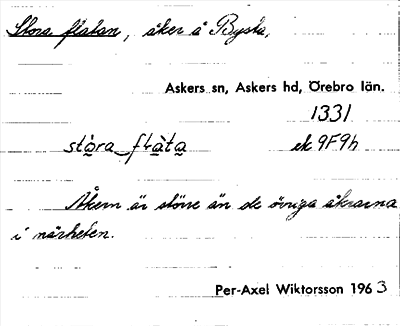 Stora flatan, åker å Bysta,
Askers sn, Askers hd, Örebro län.
1331
stòra flàta ek 9F9h
Åkern är större än de övriga åkrarna
i närheten.
Per-Axel Wiktorsson 1963